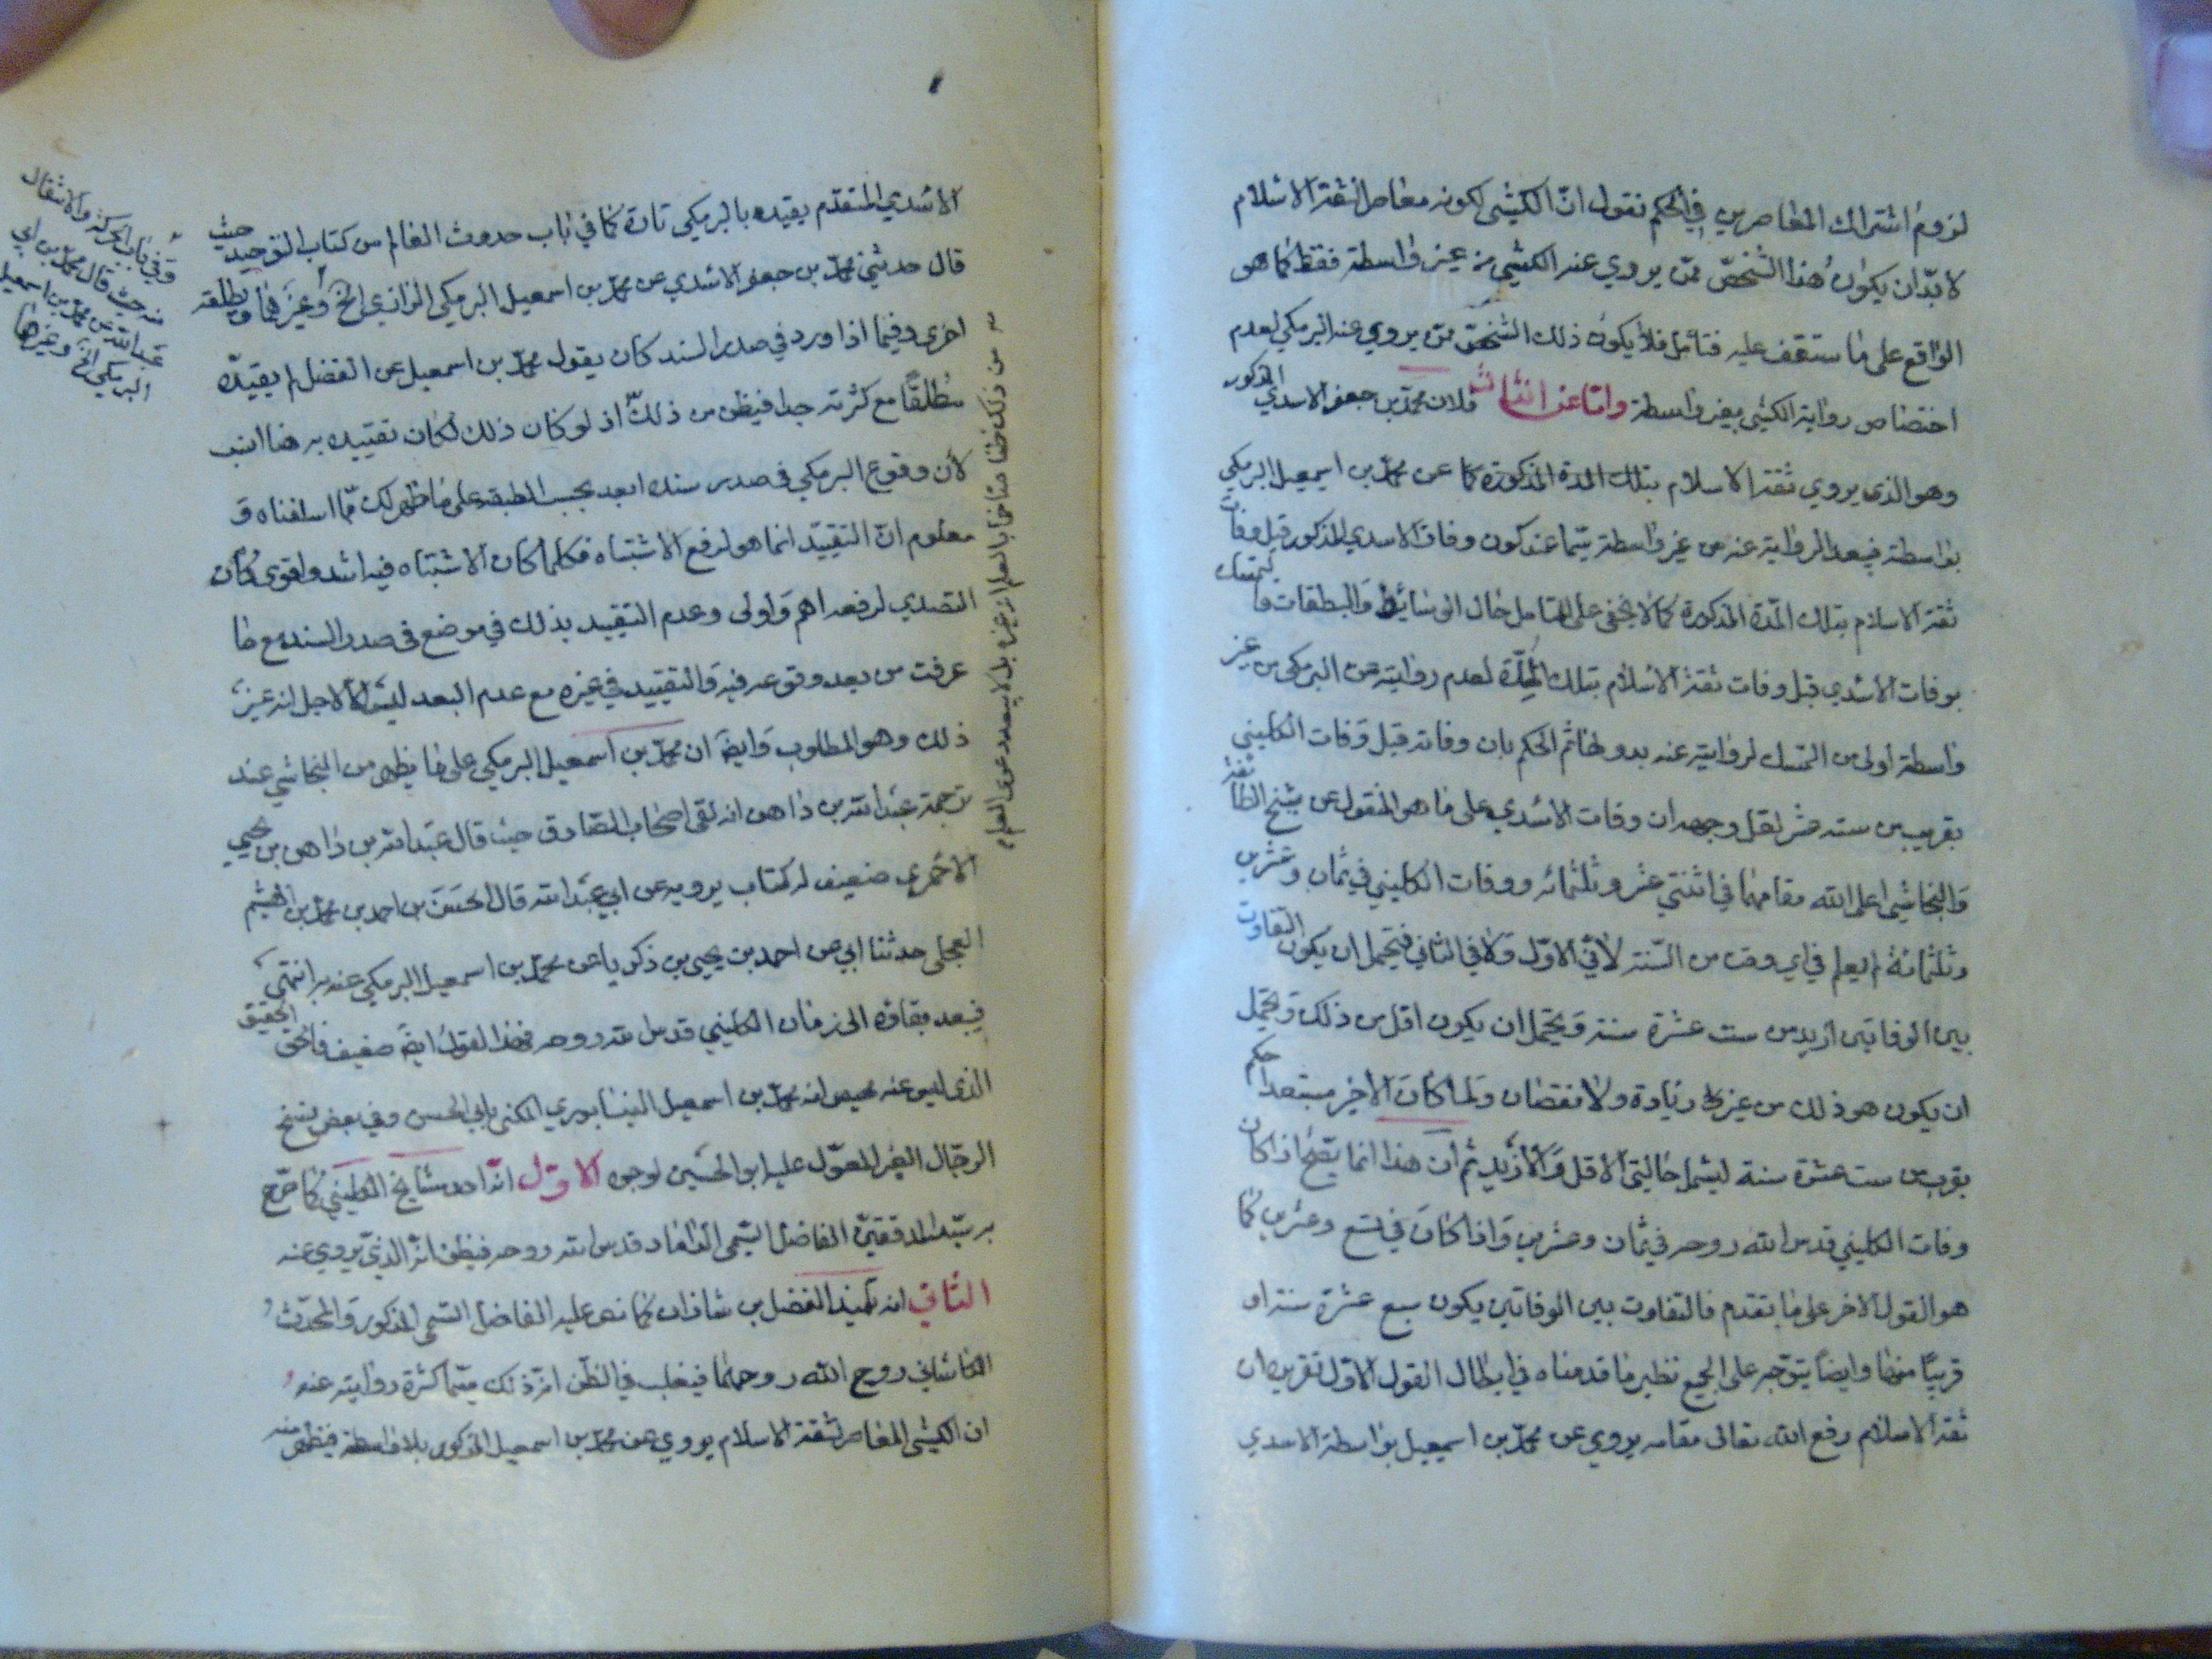 لزوم اشتراك المعاصرين في الحكم نقول انّ الكشّى لكونه معاصرا لثقة الاسلام
لا بدّ ان يكون هذا الشخص ممّن يروي عنه الكشّي من غير واسطة فقط كما هو
الواقع على ما ستقف عليه فتأمل فلا يكون ذلك الشخص ممّن يروي عنه البرمكي لعدم
اختصاص رواية الكشّي بغير واسطة وامّا عن الثالث فلان محمّد بن جعفر الاسدي المذكور
وهو الذى يروي ثقة الاسلام بتلك المدة المذكورة كما عن محمّد بن اسمعيل البرمكي
بواسطته فيبعد الرواية عنه من غير واسطة سيّما عند كون وفات الاسدي المذكور قبل وفات
ثقة الاسلام بتلك المدّة المذكورة كما لا يخفى على المتامل حال الوسائط والطبقات و
بوفات الاسدي قبل وفات ثقة الاسلام بتلك المدّة لعدم روايته عن البرمكى من غير
واسطة اولى من التمسك لروايته عنه بدونها ثم الحكم بان وفاته قبل وفات الكليني
بقريب من ستة عشر لعل وجهه ان وفات الاسدي على ما هو المنقول عن شيخ الطائفة
والنجاشي اعلى الله مقامهما في اثنتي عشر وثلثمائه ووفات الكليني في ثمان وعشرين
وثلثمائة لم يعلم في اي وقت من السّنة لا في الاوّل ولا في الثاني فيحتمل ان يكون التفاوت
بين الوفاتين ازيد من ست عشرة سنة ويحتمل ان يكون اقل من ذلك ويحتمل
ان يكون هو ذلك من غير زيادة ولا نقصان ولما كان الاخير مستبعدا حكم
بقرب من ست عشرة سنة ليشمل حالتي الاقل والازيد ثم ان هذا انما يصح اذا كان
وفات الكليني قدس الله روحه في ثمان وعشرين واذا كان في تسع وعشرين كما
هو القول الاخر على ما تقدم فالتفاوت بين الوفاتين يكون سبع عشرة سنة او
قريبًا منها وايضاً يتوجّه على الجميع نظير ما قدمناه في ابطال القول الاوّل تقريره ان
ثقة الاسلام رفع الله تعالى مقامه يروي عن محمّد بن اسمعيل بواسطة الاسدي
الاسدي المتقدّم يقيده بالبرمكي تارة كما في باب حدوث العالم من كتاب التوحيد حيث
قال حدثني محمّد بن جعفر الاسدي عن محمّد بن اسمعيل البرمكي الرازي الخ وغيرها ويطلقه
اخرى وفيما اذا ورد في صدر السند كان يقول محمّد بن اسمعيل عن الفضل لم يقيدّه
مطلقًا مع كثرته جدا فيظن من ذلك اذ لو كان ذلك لكان تقييده به هنا انسب
لأن وقوع البرمكي في صدر سنده ابعد بحسب الطبقة على ما ظهر لك ممّا اسلفناه و
معلوم انّ التقييد انما هو لرفع الاشتباه فكلما كان الاشتباه فيه اشد واقوى كان
التصدي لرفعه اهم واولى وعدم التقييد بذلك في موضع في صدر السند مع ما
عرفت من بعد وقوعه فيه والتقييد في غيره مع عدم البعد ليس الا لاجل انه غير
ذلك وهو المطلوب وايضا ان محمّد بن اسمعيل البرمكي على ما يظهر من النجاشي عند
ترجمة عبد الله بن داهر انه لقى اصحاب الصّادق حيث قال عبد الله بن داهر بن يحيي
الاحمري ضعيف له كتاب يرويه عن ابي عبد الله قال الحسن بن احمد بن محمّد بن الهيثم
العجلى حدثنا ابي عن احمد بن يحيى بن زكريا عن محمّد بن اسمعيل البرمكي عنه به انتهى
فيبعد بقاؤه الى زمان الكليني قدس الله روحه فهذا القول ايضا ضعيف فالحق الحقيق
الذى ليس عنه محيص انه محمّد بن اسمعيل النيسابوري المكنى بابي الحسن وفي بعض نسخ
الرجال الغير المعوّل عليه ابو الحسين لوجوه الاوّل انّه احد مشايخ الكليني كما صرّح
به سيّد المدققين الفاضل السّمى الداماد قدس الله روحه فيظن انّه الذي يروي عنه
الثاني انه تلميذ الفضل بن شاذان كما نص عليه الفاضل السّمي المذكور والمحدّث
الكاشاني روح الله روحهما فيغلب في الظن انّه ذلك سيّما كثرة روايته عنه
ان الكشّي المعاصر لثقة الاسلام يروي عن محمّد بن اسمعيل المذكور بلا واسطة فيظهر منه
وفي باب الحركة والانتقال
منه حيث قال محمّد بن ابي
عبد الله عن محمّد بن اسمعيل
البرمكي الخ وغيرها
من ذلك ظنا متاخما بالعلم انه غيره بل لا يبعد دعوى العلم